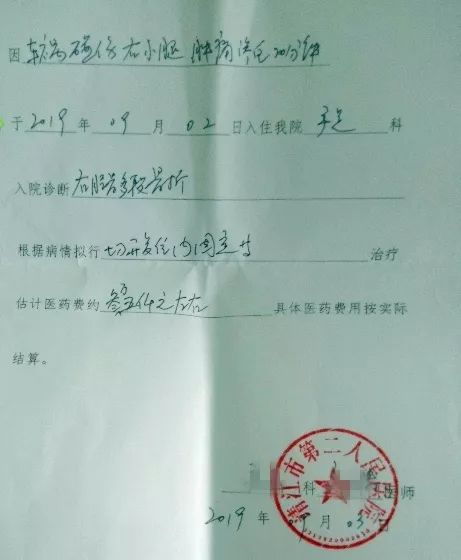 因 车祸碰伤右小腿 肿痛流血20分钟
于 2019 年 09 月 02 日入住我院 手足 科
入院诊断 右胫骨多段骨折
根据病情拟行 切开复位内固定等 治疗
估计医药费约 叁万仟元左右 具体医药费用按实际
结算。
科 医师
2019 年 9 月 03 日
市第二人民医院